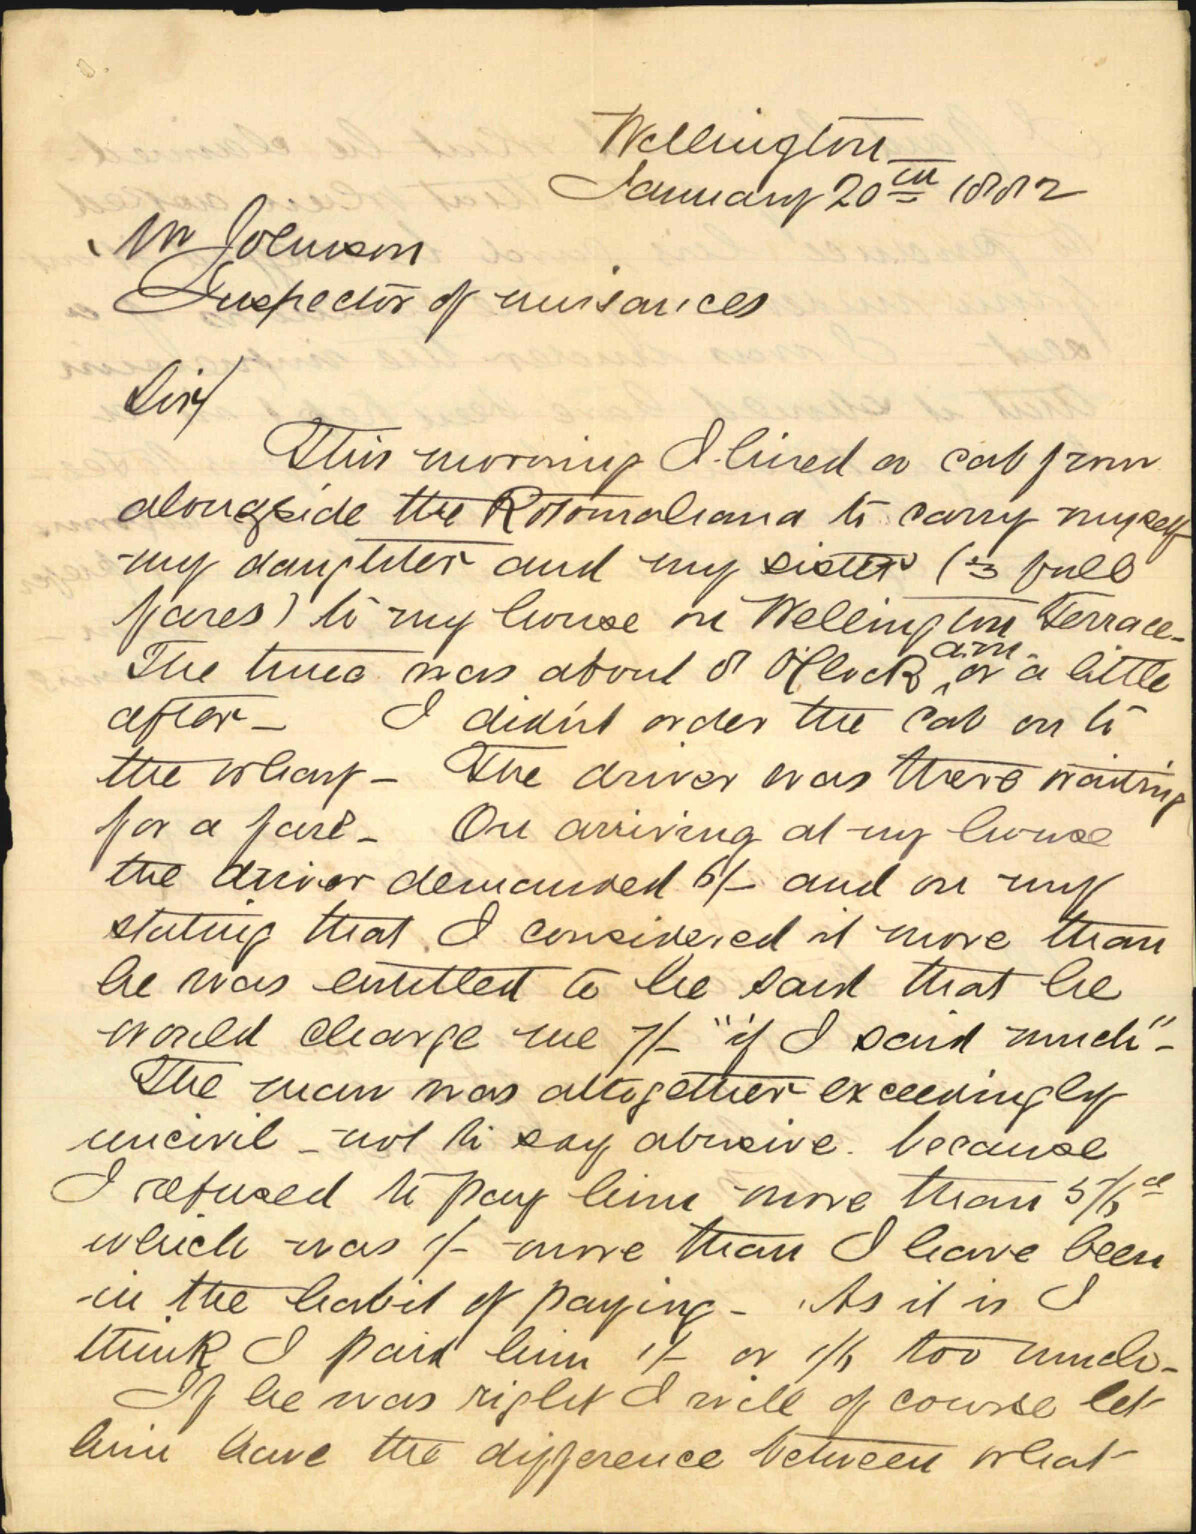 Wellington
January 20th 1882
Mr Johnson
Inspector of nuisances
Sir/
This morning I hired a cab from
alongside the Rotomahana to carry myself
my daughter and my sister (3 full
fares) to my house on Wellington Terrace_
The time was about 8 O'Clock a.m. or a little
after_ I didn't order the cab on to
the wharf_ The driver was there waiting
for a fare_ On arriving at my house
the driver demanded 6/_ and on my
stating that I considered it more than
he was entitled to he said that he
would charge me 7/_ "if I said much"_
The man was altogether exceedingly
uncivil _ not to say abusive. because
I refused to pay him more than 5/6d
which was 1/_ more than I have been
in the habit of paying_ As it is I
think I paid him 1/_ or 1/6 too much_
If he was right I will of course let
him have the difference between what